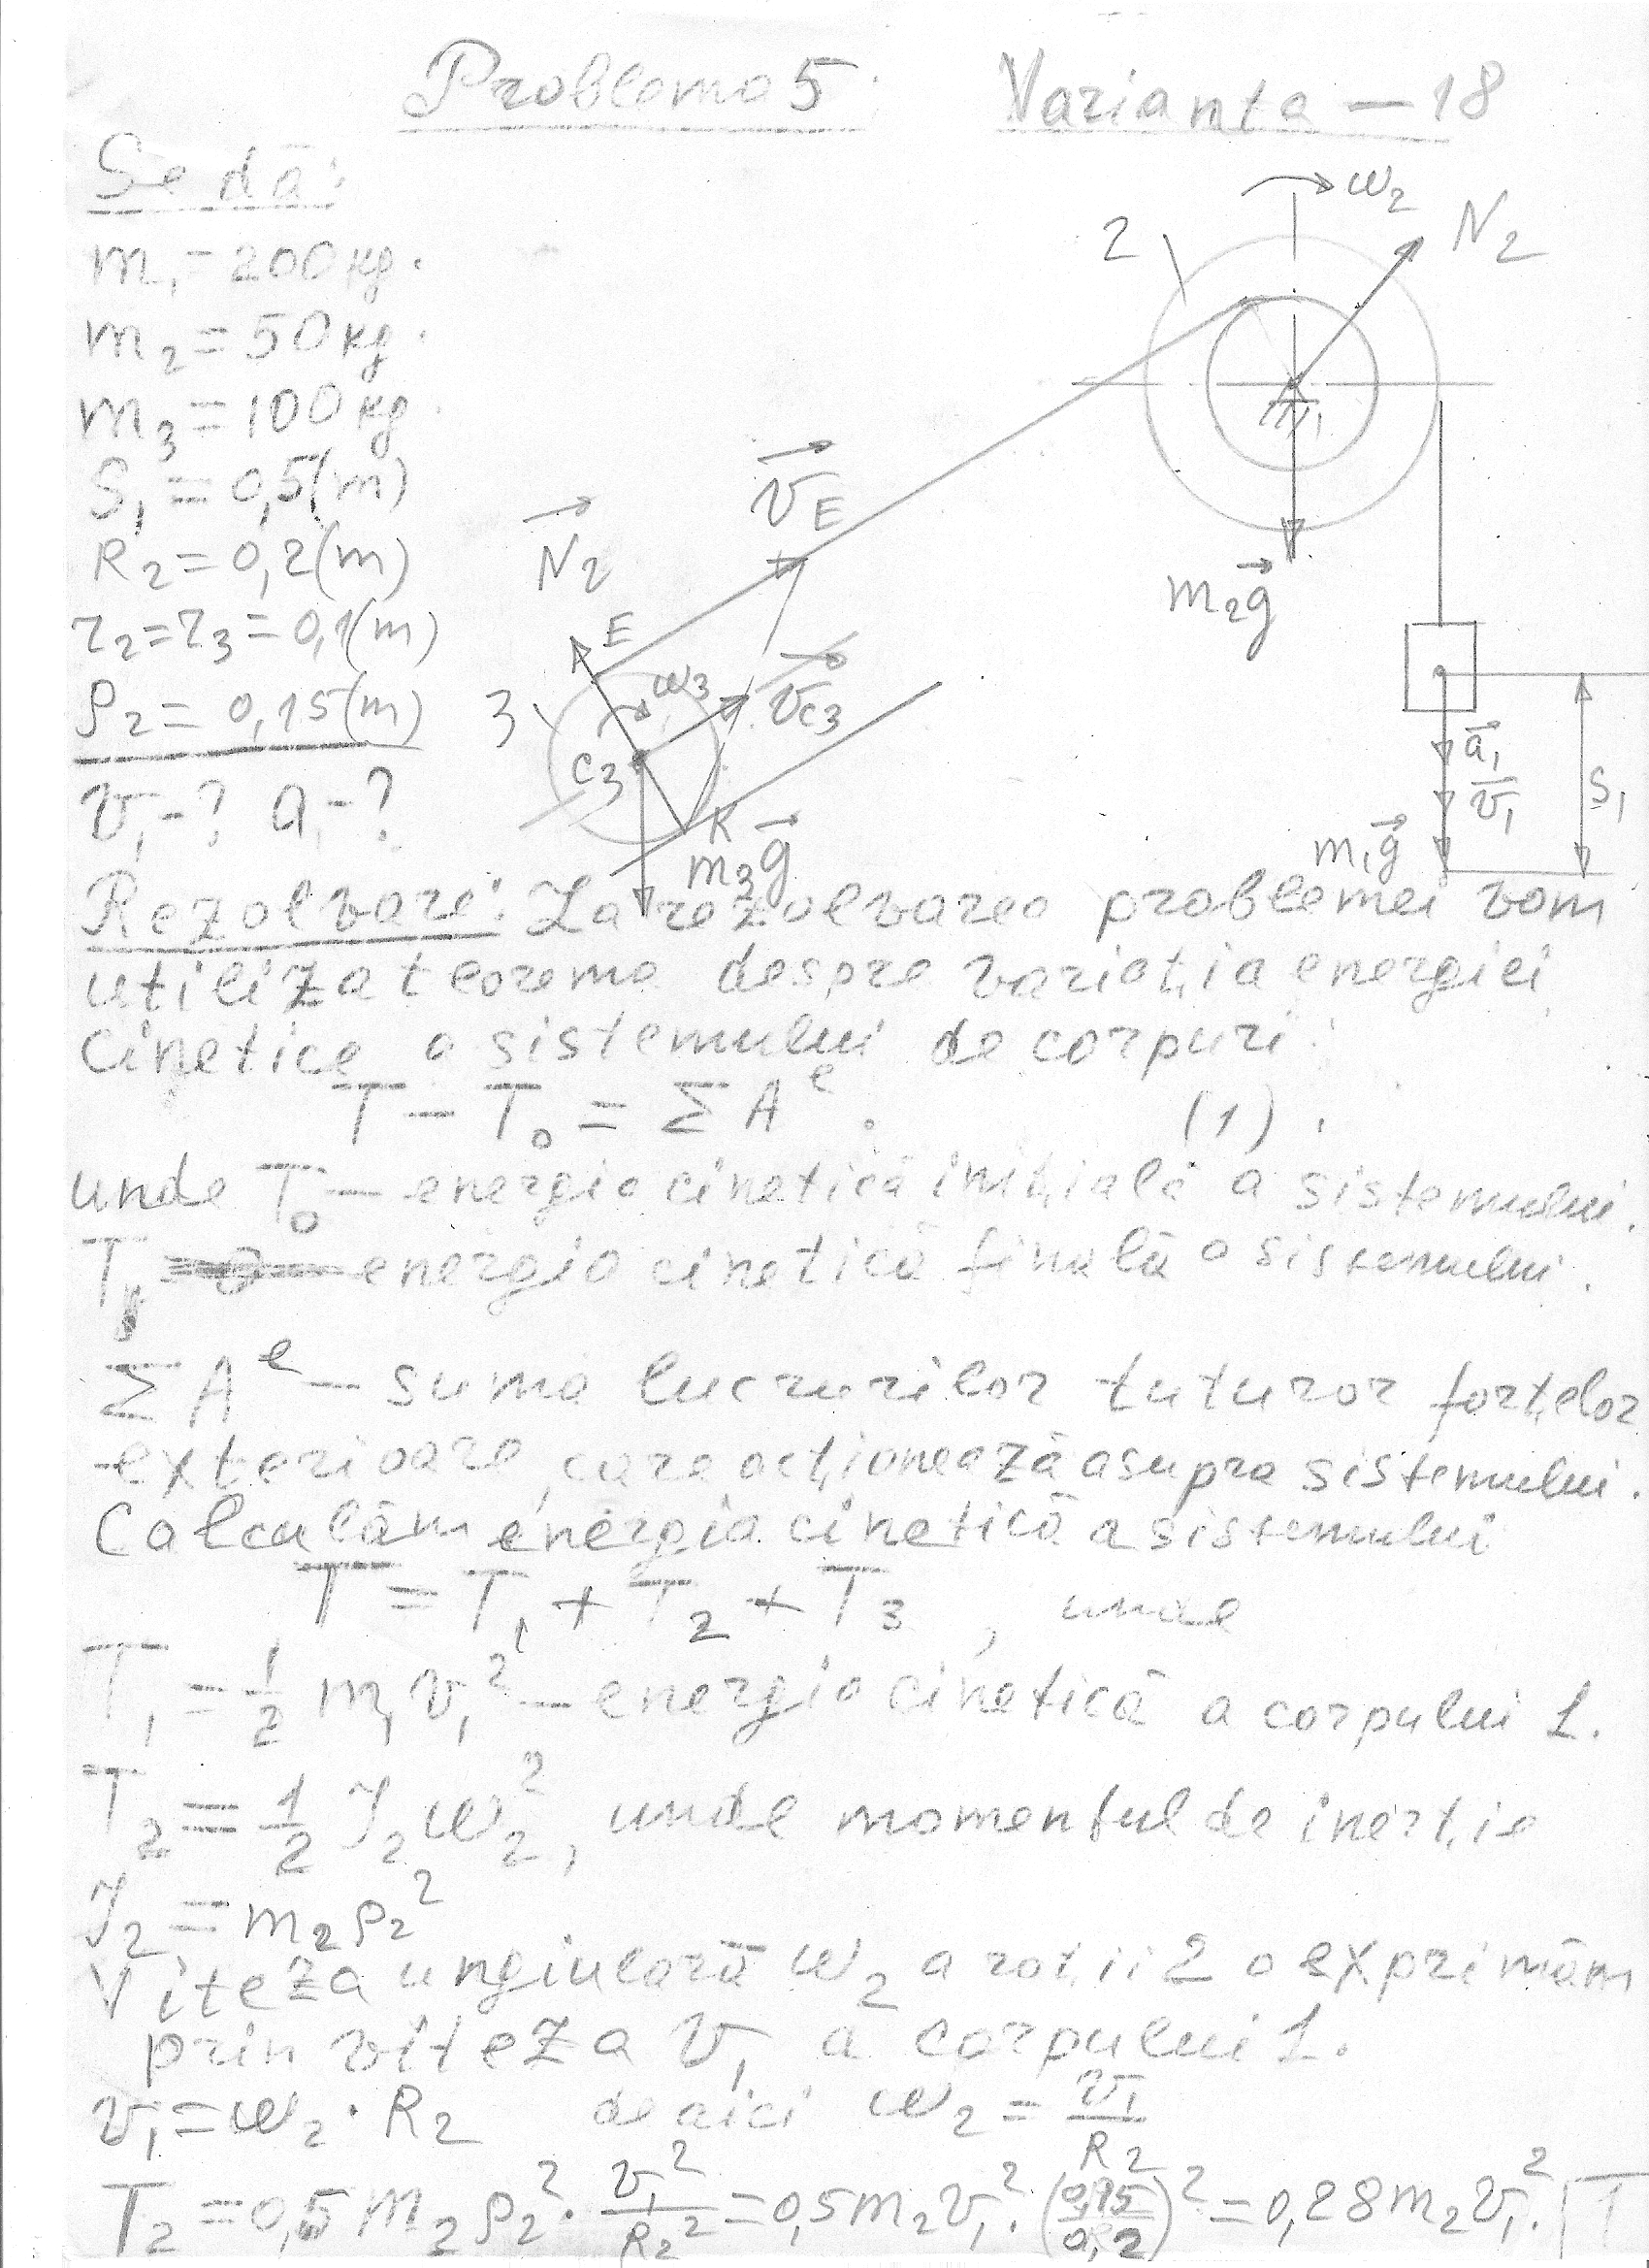 Problema 5. Varianta – 18
Se dă:
m₁ = 200 kg.
m₂ = 50 kg.
m₃ = 100 kg.
S₁ = 0,5 (m)
R₂ = 0,2 (m)
r₂ = r₃ = 0,1 (m)
ρ₂ = 0,15 (m)
v₁ - ? a₁ - ?
ω₂
2
N₂
v⃗_E
N⃗₂
m₂g⃗
E
ω₃
3
v⃗_C3
C₃
K
m₃g⃗
a⃗₁
v̄₁
S₁
m₁g⃗
Rezolvare: La rezolvarea problemei vom
utiliza teorema despre variația energiei
cinetice a sistemului de corpuri:
T – T₀ = Σ Aᵉ. (1).
unde T₀ – energia cinetică inițială a sistemului.
T – energia cinetică finală a sistemului.
Σ Aᵉ – suma lucrurilor tuturor forțelor
exterioare, care acționează asupra sistemului.
Calculăm energia cinetică a sistemului
T = T₁ + T₂ + T₃, unde
T₁ = 1/2 m₁v₁² – energia cinetică a corpului 1.
T₂ = 1/2 J₂ω₂², unde momentul de inerție
J₂ = m₂ρ₂²
Viteza unghiulară ω₂ a roții 2 o exprimăm
prin viteza v₁ a corpului 1.
v₁ = ω₂ · R₂ de aici ω₂ = v₁/R₂
T₂ = 0,5 m₂ρ₂² · v₁²/R₂² = 0,5 m₂v₁² · (0,15/0,2)² = 0,28 m₂v₁².